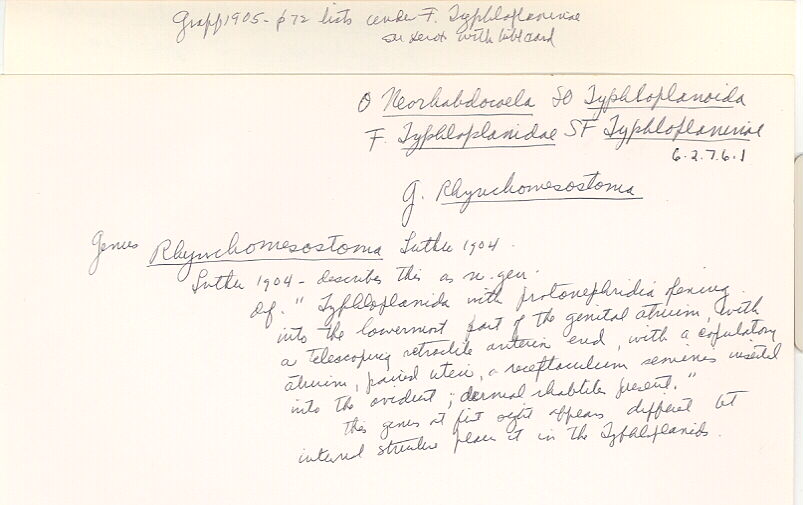 Graff 1905 - p 72 lists under F. Typhloplaninae
see xerox with bibl card
O Neorhabdocoela SO Typhloplanoida
F. Typhloplanidae SF Typhloplaninae
6.2.7.6.1
g. Rhynchomesostoma
Genus Rhynchomesostoma Luther 1904.
Luther 1904 - describes this as n. gen.
def. "Typhloplanida with protonephridia opening
into the lowermost part of the genital atrium, with
a telescoping retractile anterior end, with a copulatory
atrium, paired uteri, a receptaculum seminis inserted
into the oviduct; dermal rhabdites present."
this genus at first sight appears different but
internal structure places it in the Typhloplanids.